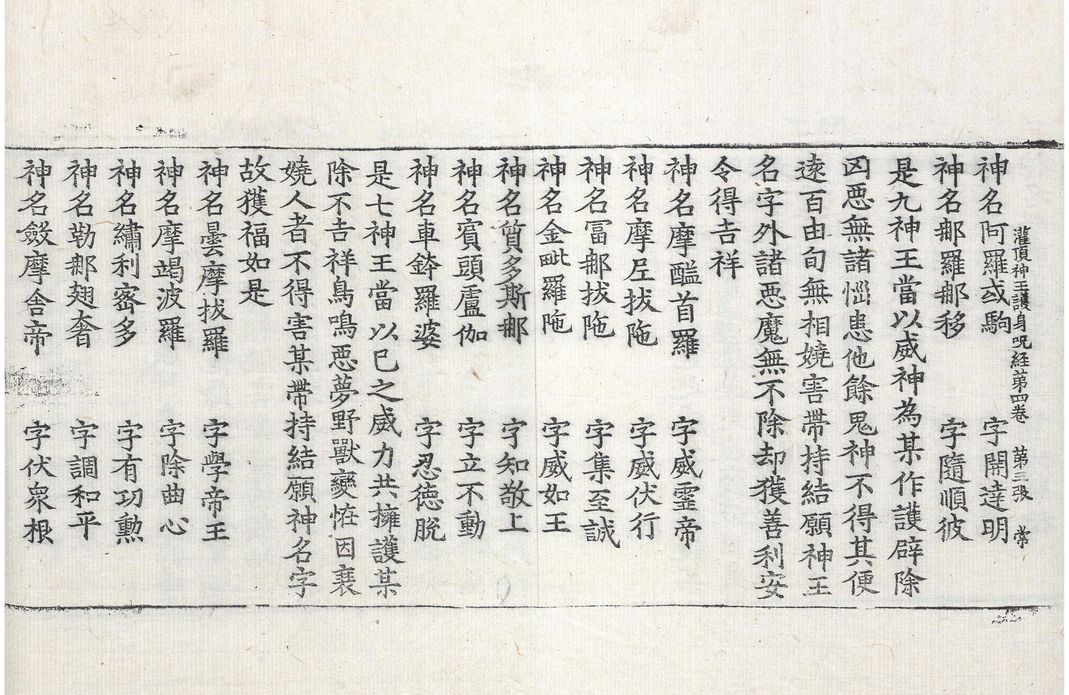 神名阿羅或駒　字閙達明
灌頂神王護身呪經第四卷　第三張　常
神名𨚗羅𨚗移　字隨順彼
是九神王當以威神為某作護辟除
凶惡無諸惱患他餘鬼神不得其便
逺百由旬無相嬈害帶持結願神王
名字外諸惡魔無不除却獲善利安
令得吉祥
神名摩醯首羅　字威靈帝
神名摩𡰱拔陁　字威伏行
神名冨𨚗拔陁　字集至誠
神名金毗羅陁　字威如王
神名質多斯𨚗　字知敬上
神名賔頭盧伽　字立不動
神名車鉢羅婆　字忍德脫
是七神王當以已之威力共擁護某
除不吉祥鳥鳴惡夢野獸變恠因衰
嬈人者不得害某帶持結願神名字
故獲福如是
神名曇摩拔羅　字學帝王
神名摩竭波羅　字除曲心
神名繡利宻多　字有功勲
神名勒𨚗翅奢　字調和平
神名斂摩舍帝　字伏衆根